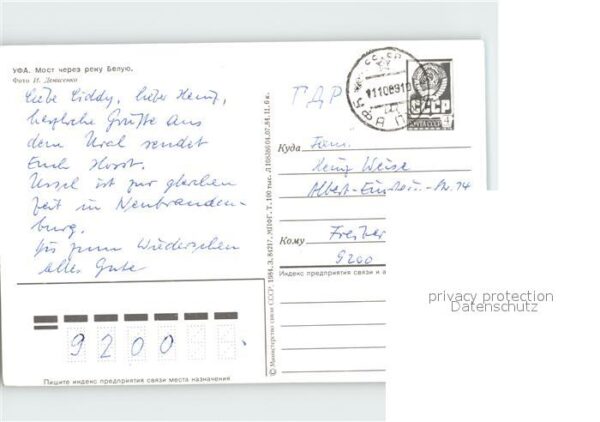 УФА. Мост через реку Белую.
Фото И. Денисенко
Liebe Liddy, lieber Heinz,
herzliche Grüße aus
dem Ural sendet
Euch Horst.
Ursel ist zur gleichen
Zeit in Neubranden-
burg.
Bis zum Wiedersehen
alles Gute
ГДР
СССР
Куда
Fam.
Heinz Weise
Albert-Einstein-Str. 74
Кому
Freiber
9200
Индекс предприятия связи и а
© Министерство связи СССР. 1984. З. 84217. МПФГ. Т. 100 тыс.
9200
Пишите индекс предприятия связи места назначения
privacy protection
Datenschutz